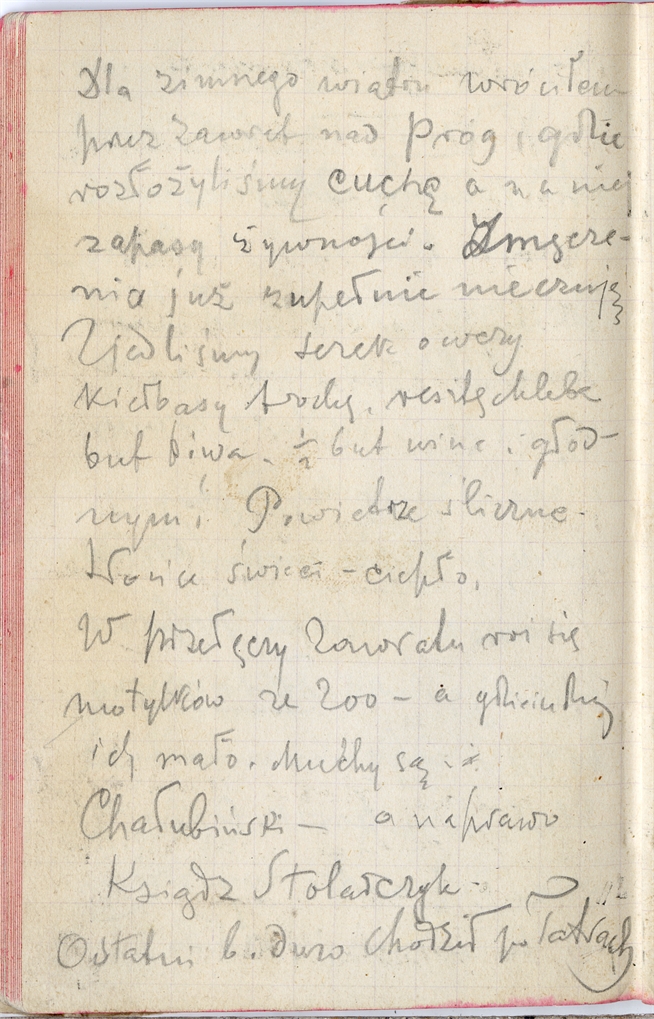 Dla zimnego wiatru wróciłem
przez Zawrat nad Próg, gdzie
rozłożyliśmy cuchę a na niej
zapasy żywności. Zmęcze-
nia już zupełnie nie czuję
Zjedliśmy serek owczy
kiełbasy trochę, resztę chleba
but piwa. ½ but wina i głod-
nymi Powietrze śliczne.
słońce świeci - ciepło.
W przełęczy Zawratu roi się
motylków ze 200 - a gdzieindziej
ich mało. Muchy są.
Chałubiński - a naprawo
Ksiądz Stolarczyk.
Ostatni b. dużo chodził po Tatrach